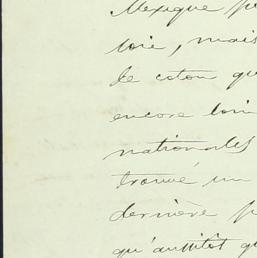 Mexique
loie, mais
le coton qu
encore loin
nationales
trouvé un
dernière p
qu'aussitôt qu